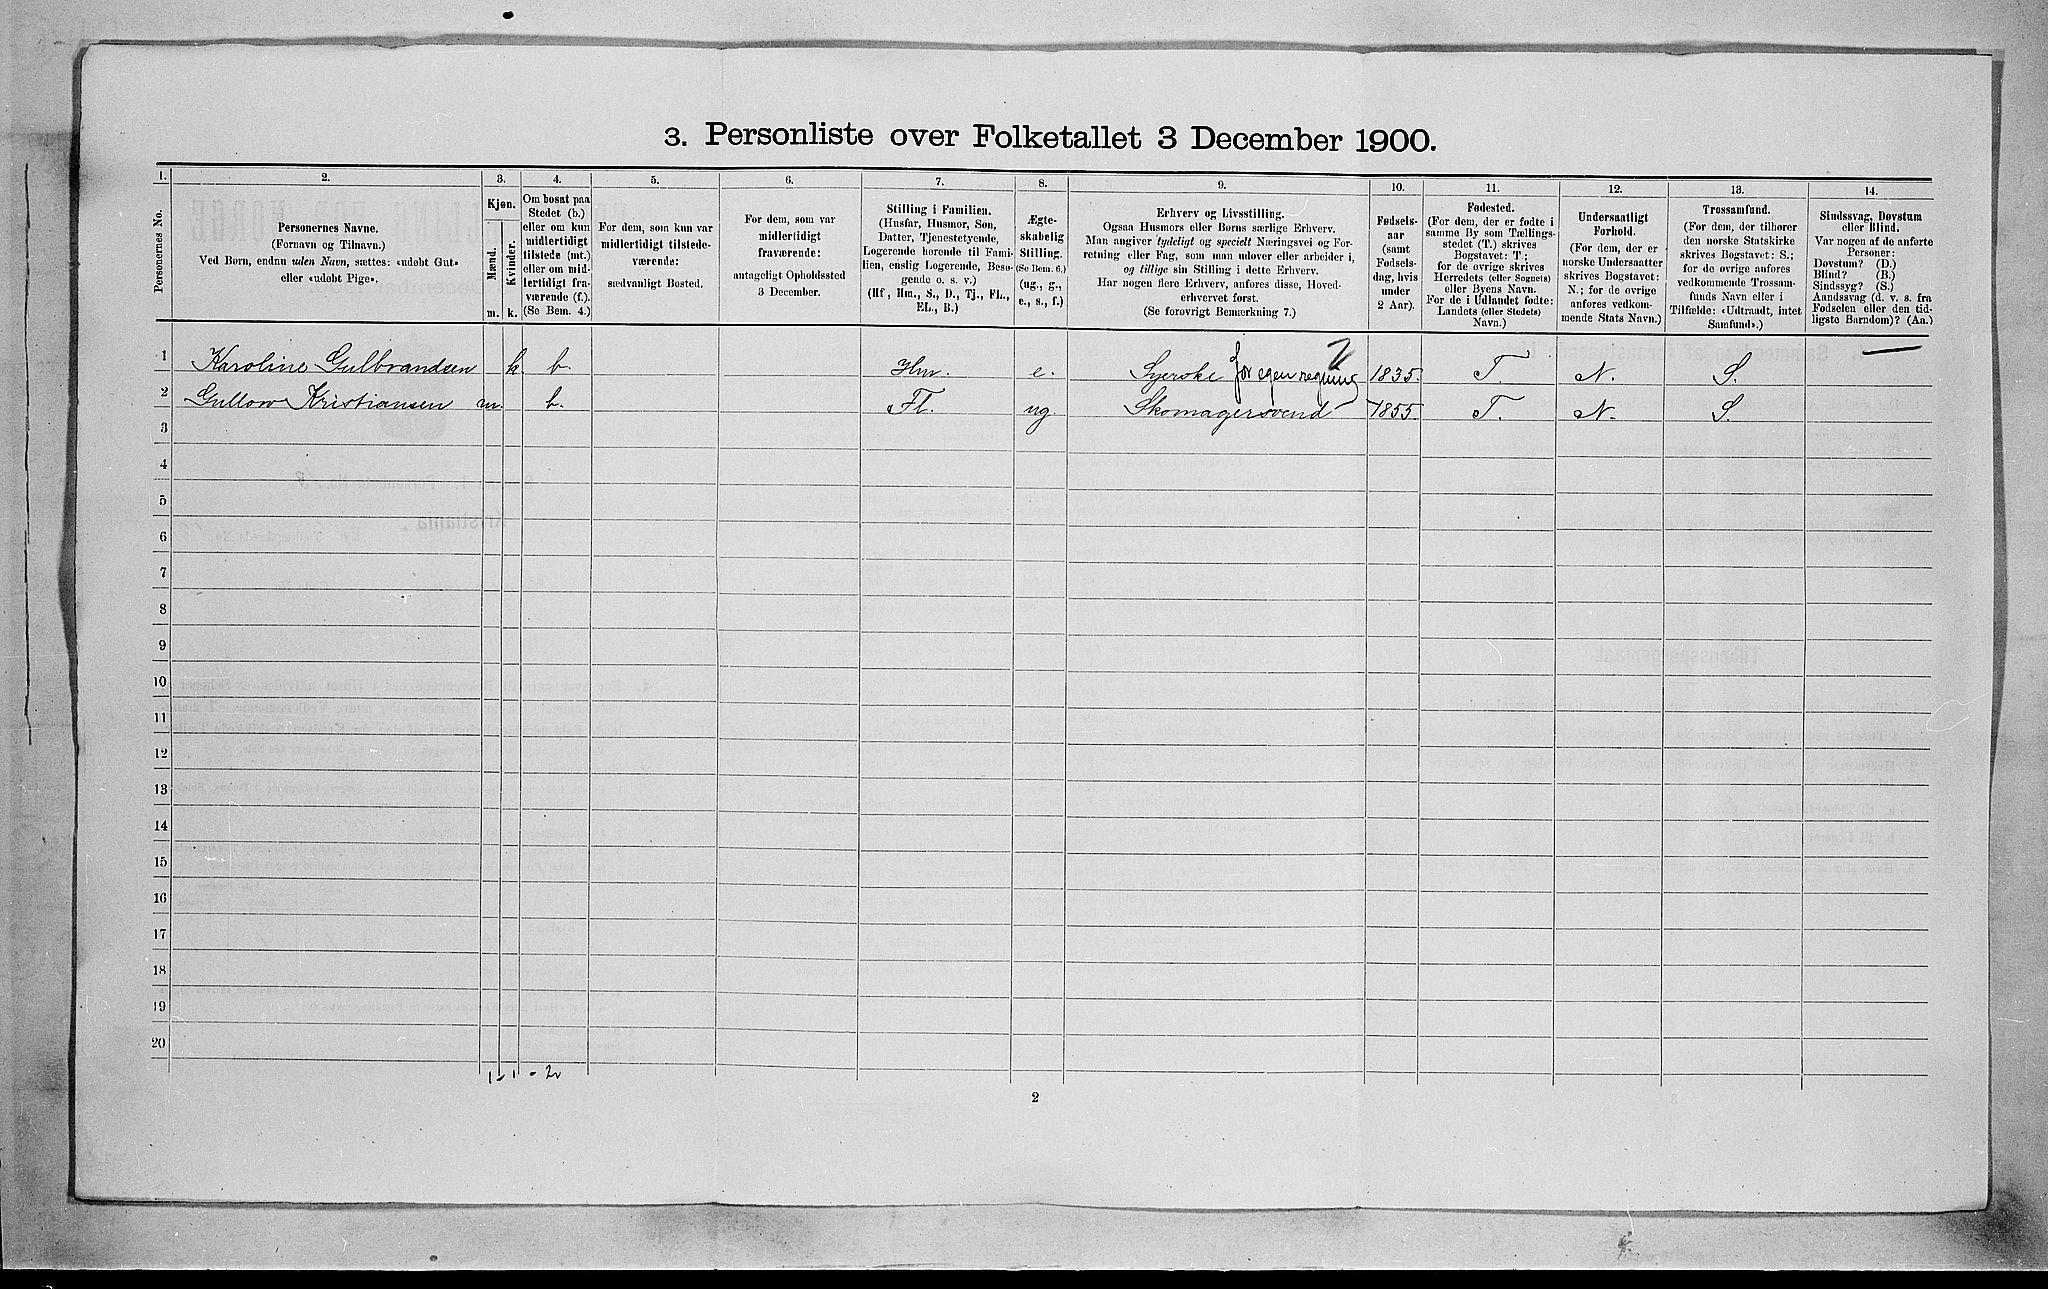 3. Personliste over Folketallet 3 December 1900.
1. 2. 3. 4. 5. 6. 7. 8. 9. 10. 11. 12. 13. 14.
Personernes No.
Personernes Navne.
(Fornavn og Tilnavn.)
Ved Børn, endnu uden Navn, sættes: «udøbt Gut»
eller «udøbt Pige».
Kjøn.
Mænd.
Kvinder.
m. k.
Om bosat paa
Stedet (b.)
eller om kun
midlertidigt
tilstede (mt.)
eller om mid-
lertidigt fra-
værende (f.).
(Se Bem. 4.)
For dem, som kun var
midlertidigt tilstede-
værende:
sædvanligt Bosted.
For dem, som var
midlertidigt
fraværende:
antageligt Opholdssted
3 December.
Stilling i Familien.
(Husfar, Husmor, Søn,
Datter, Tjenestetyende,
Logerende hørende til Fami-
lien, enslig Logerende, Besø-
gende o. s. v.)
(Hf., Hm., S., D., Tj., FL.,
EL., B.)
Ægte-
skabelig
Stilling.
(Se Bem. 6.)
(ug., g.,
e., s., f.)
Erhverv og Livsstilling.
Ogsaa Husmors eller Børns særlige Erhverv.
Man angiver tydeligt og specielt Næringsvei og For-
retning eller Fag, som man udøver eller arbeider i,
og tillige sin Stilling i dette Erhverv.
Har nogen flere Erhverv, anføres disse, Hoved-
erhvervet først.
(Se forøvrigt Bemærkning 7.)
Fødsels-
aar
(samt
Fødsels-
dag, hvis
under
2 Aar).
Fødested.
(For dem, der er fødte i
samme By som Tællings-
stedet (T.) skrives
Bogstavet: T;
for de øvrige skrives
Herredets (eller Sognets)
eller Byens Navn.
For de i Udlandet fødte:
Landets (eller Stedets)
Navn.)
Undersaatligt
Forhold.
(For dem, der er
norske Undersaatter
skrives Bogstavet:
N.; for de øvrige
anføres vedkom-
mende Stats Navn.)
Trossamfund.
(For dem, der tilhører
den norske Statskirke
skrives Bogstavet: S.;
for de øvrige anføres
vedkommende Trossam-
funds Navn eller i
Tilfælde: «Udtraadt, intet
Samfund».)
Sindssvag, Døvstum
eller Blind.
Var nogen af de anførte
Personer:
Døvstum? (D.)
Blind? (B.)
Sindssyg? (S.)
Aandssvag (d. v. s. fra
Fødselen eller den tid-
ligste Barndom)? (Aa.)
1 Karoline Gulbrandsen k. b. Hm. e. Syerske for egen regning 1835. T. N. S.
2 Gullow Kristiansen m. b. Fl. ug. Skomagersvend 1855. T. N. S.
3
4
5
6
7
8
9
10
11
12
13
14
15
16
17
18
19
20
1 - 1 - 2
2